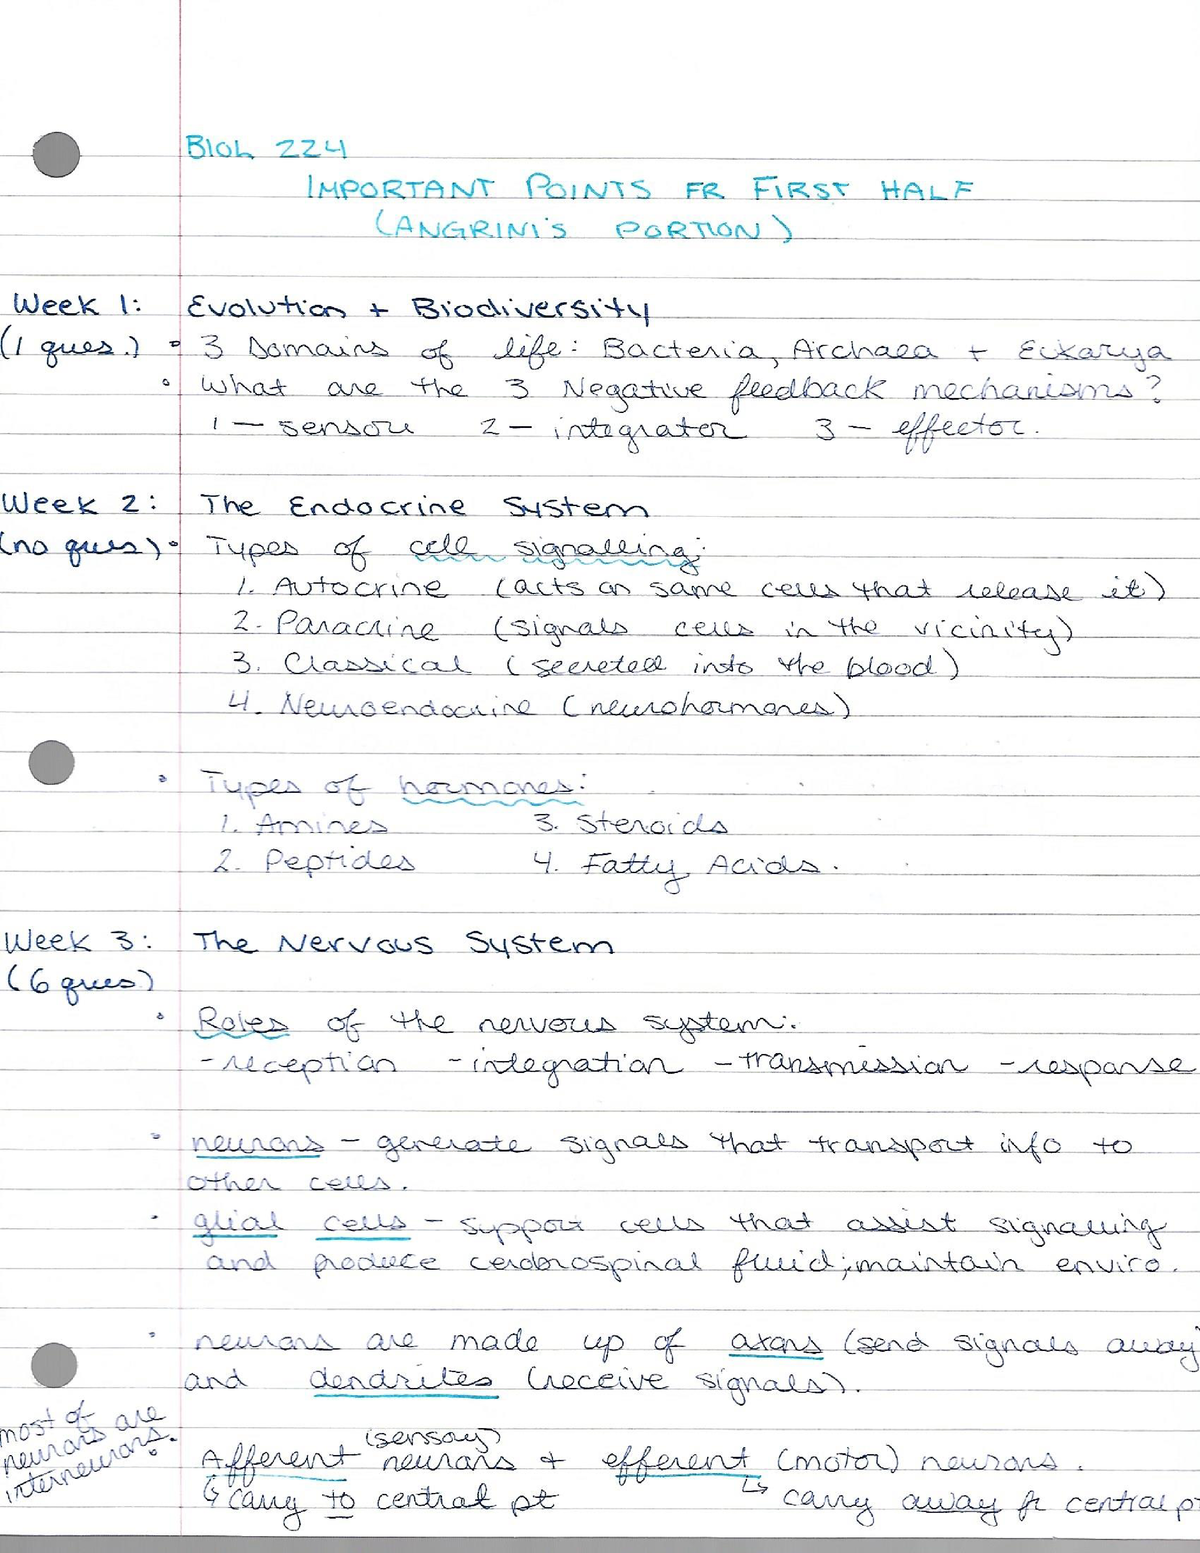 BIOL 224
IMPORTANT POINTS FR FIRST HALF
(ANGRINI'S PORTION)
Week 1: Evolution + Biodiversity
(1 ques.) • 3 Domains of life: Bacteria, Archaea + Eukarya
• What are the 3 Negative feedback mechanisms?
1 - sensor 2 - integrator 3 - effector.
Week 2: The Endocrine System
(no ques) • Types of cell signalling:
1. Autocrine (acts on same cells that release it)
2. Paracrine (signals cells in the vicinity)
3. Classical (secreted into the blood)
4. Neuroendocrine (neurohormones)
• Types of hormones:
1. Amines 3. Steroids
2. Peptides 4. Fatty Acids.
Week 3: The Nervous System
(6 ques)
• Roles of the nervous system:
- reception - integration - transmission - response
• neurons - generate signals that transport info to
other cells.
• glial cells - support cells that assist signalling
and produce cerobrospinal fluid; maintain enviro.
• neurons are made up of axons (send signals away)
and dendrites (receive signals).
most of
neurons are
interneurons.
(sensory)
• Afferent neurons + efferent (motor) neurons.
↳ carry to central pt ↳ carry away fr central pt